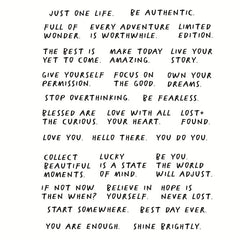 JUST ONE LIFE. BE AUTHENTIC.
FULL OF EVERY ADVENTURE LIMITED
WONDER. IS WORTHWHILE. EDITION.
THE BEST IS MAKE TODAY LIVE YOUR
YET TO COME. AMAZING. STORY.
GIVE YOURSELF FOCUS ON OWN YOUR
PERMISSION. THE GOOD. DREAMS.
STOP OVERTHINKING. BE FEARLESS.
BLESSED ARE LOVE WITH ALL LOST+
THE CURIOUS. YOUR HEART. FOUND.
LOVE YOU. HELLO THERE. YOU DO YOU.
COLLECT LUCKY BE YOU.
BEAUTIFUL IS A STATE THE WORLD
MOMENTS. OF MIND. WILL ADJUST.
IF NOT NOW BELIEVE IN HOPE IS
THEN WHEN? YOURSELF. NEVER LOST.
START SOMEWHERE. BEST DAY EVER.
YOU ARE ENOUGH. SHINE BRIGHTLY.